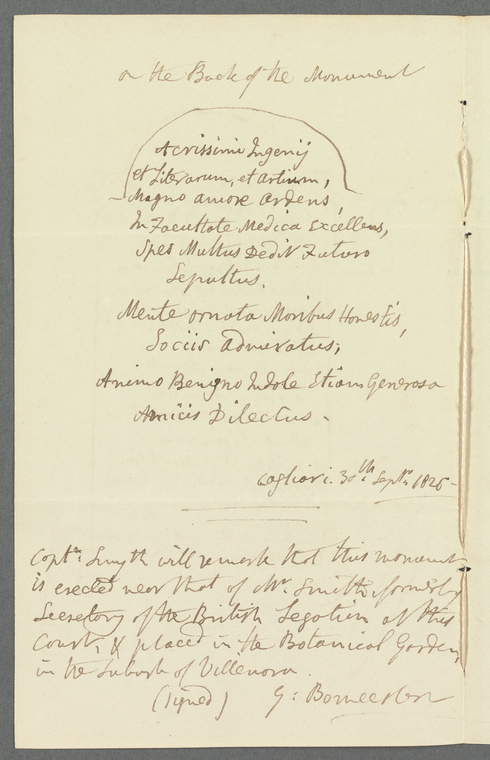 on the Back of the Monument
Acrissimi Ingenij
et Literarum, et artium,
Magno amore ardens,
In Facultate Medica Excellens,
Spes Multus Dedit Futuro
Sepultus.
Mente ornata Moribus Honestis,
Sociis admiratus;
Animo Benigno Indole Etiam Generosa
Amicis Dilectus -
Cagliari. 30th Septr. 1825 -
Captn. Smyth will remark that this monument
is erected near that of Mr. Smith, formerly
Secretary of the British Legation at this
Court, & placed in the Botanical Garden,
in the Suburb of Villenova.
(signed) G: